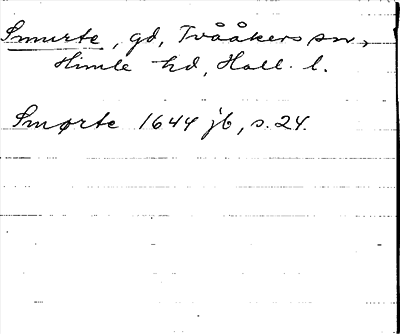 Smurte, gd, Tvååkers sn,
Himle hd, Hall. l.
Smørte 1644 jb, s. 24.